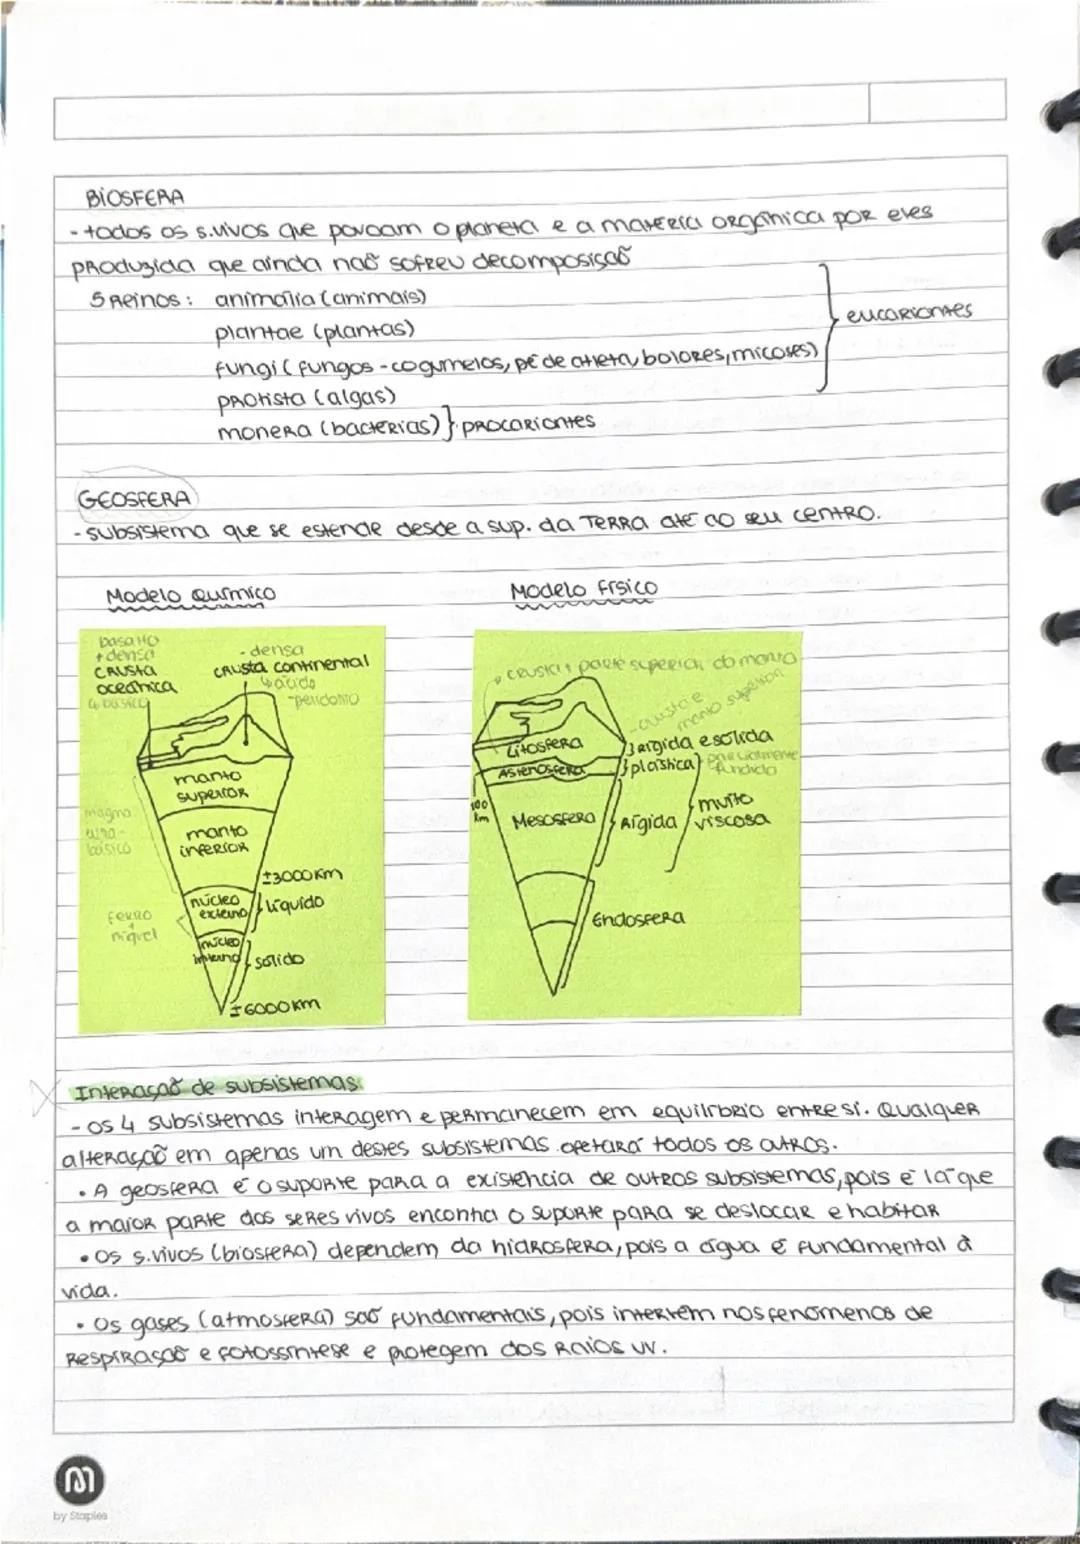 BIOSFERA
- todos os s.vivos que povoam o planeta e a matéria orgânica por eles
produzida que ainda não sofreu decomposição
5 Reinos: animália (animais)
plantae (plantas)
eucariontes
fungi (fungos - cogumelos, pé de atleta, bolores, micoses)
protista (algas)
monera (bactérias) } procariontes
GEOSFERA
- subsistema que se estende desde a sup. da Terra até ao seu centro.
Modelo Químico
Modelo Físico
basalto
+ densa
crusta
oceânica
↳ básico
- densa
crusta continental
↳ ácido
manto
superior
magma
ultra-
básico
manto
inferior
±3000 km
núcleo
externo
líquido
ferro
+
níquel
núcleo
interno
sólido
±6000 km
crusta + parte superior do manto
- crusta e
manto superior
Litosfera
} rígida e sólida
Astenosfera
} plástica } parcialmente
fundida
100
km
Mesosfera
Rígida
muito
viscosa
Endosfera
Interação de subsistemas:
- os 4 subsistemas interagem e permanecem em equilíbrio entre si. Qualquer
alteração em apenas um destes subsistemas afetará todos os outros.
• A geosfera é o suporte para a existência de outros subsistemas, pois é lá que
a maior parte dos seres vivos encontra o suporte para se deslocar e habitar
• Os s.vivos (biosfera) dependem da hidrosfera, pois a água é fundamental à
vida.
• Os gases (atmosfera) são fundamentais, pois intervêm nos fenómenos de
respiração e fotossíntese e protegem dos raios UV.
M
by Staples